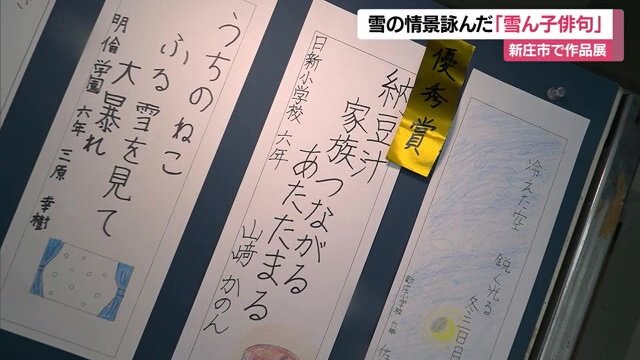 雪の情景詠んだ「雪ん子俳句」
新庄市で作品展
優秀賞
冷えた空
鋭く光る
冬三日月
新庄小学校 六年
佐
納豆汁
家族つながる
あたたまる
日新小学校 六年
山﨑 かのん
うちのねこ
ふる雪を見て
大暴れ
明倫学園 六年
三原 幸樹